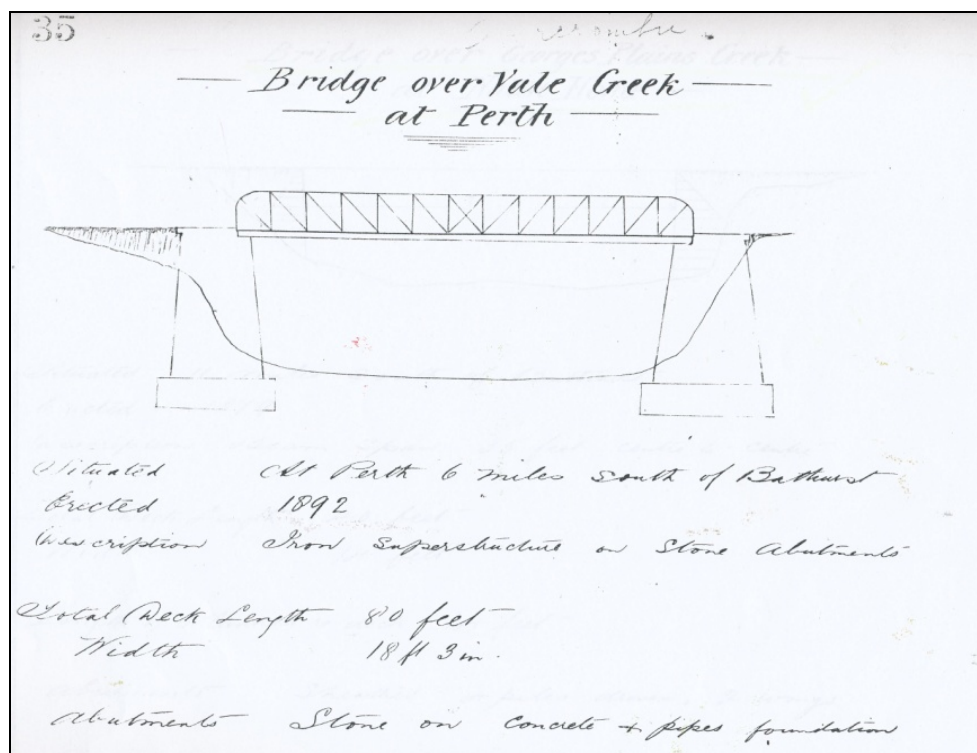 35
Bridge over Vale Creek
at Perth
Situated At Perth 6 miles south of Bathurst
Erected 1892
Description Iron Superstructure on Stone Abutments
Total Deck Length 80 feet
Width 18 ft 3 in.
Abutments Stone on concrete + pipes foundation